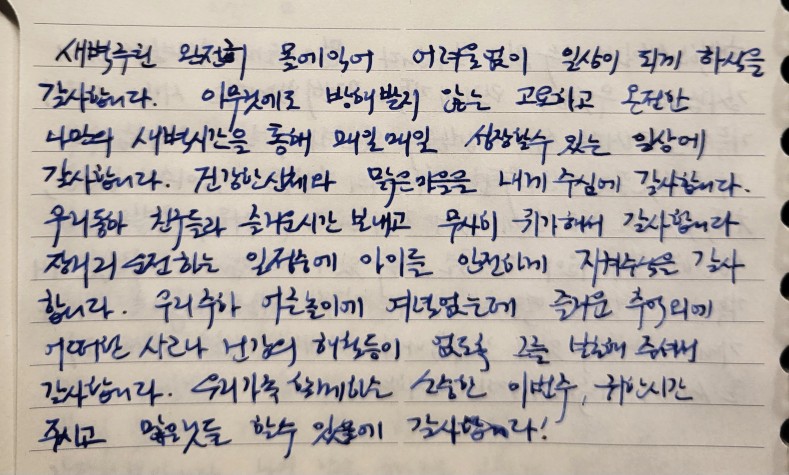 새벽수련 완전히 몸에익어 어려움없이 일상이 되게 하심을
감사합니다. 아무것에도 방해받지 않는 고요하고 온전한
나만의 새벽시간을 통해 매일매일 성장할수 있는 일상에
감사합니다. 건강한신체와 맑은마음을 내게 주심에 감사합니다.
우리동아 친구들과 즐거운시간 보내고 무사히 귀가해서 감사합니다
장거리 운전하는 일정중에 아이를 안전하게 지켜주심을 감사
합니다. 우리주아 어른놀이에 여념없는데 즐거운 추억외에
어떠한 사고나 건강의 해침등이 없도록 그를 보호해 주셔서
감사합니다. 우리가족 함께하는 소중한 이번주, 귀한시간
주시고 많은것들 할수 있음에 감사합니다!